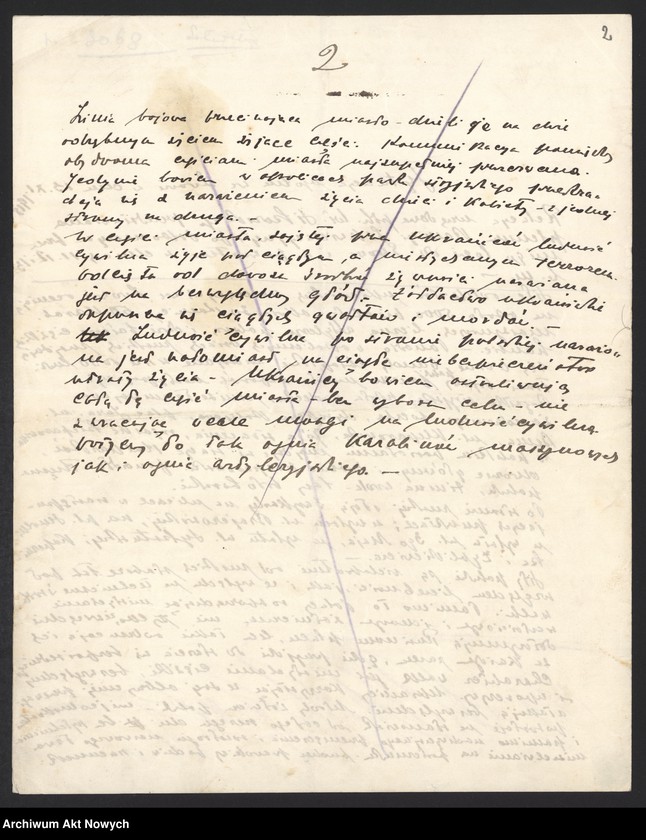 2
2
Linia bojowa przecinająca miasto - dzieli je na dwie
odrębnym życiem żyjące części. Komunikacja pomiędzy
obydwoma częściami miasta najzupełniej przerwana.
Jedynie bowiem w okolicach parku stryjskiego przekra-
dają się z narażeniem życia dzieci i kobiety - z jednej
strony na drugą. -
W części miasta zajętej przez Ukraińców ludność
cywilna żyje pod ciągłym, a terrorem.
od dowozu środków żywności narażona
jest na bezwzględny głód. - Żołdactwo ukraińskie
się ciągłych gwałtów i mordów. -
Ludność cywilna po stronie polskiej narażo-
na jest natomiast na ciągłe niebezpieczeństwo
utraty życia. - Ukraińcy bowiem ostrzeliwują
całą tę część miasta - bez wyboru celu - nie
zwracając wcale uwagi na ludność cywilną
do tak ognia karabinów maszynowych
jak i ognia artyleryjskiego. -
Archiwum Akt Nowych